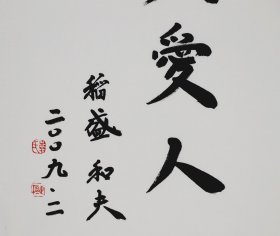 愛人
稻盛 和夫
二〇〇九.二